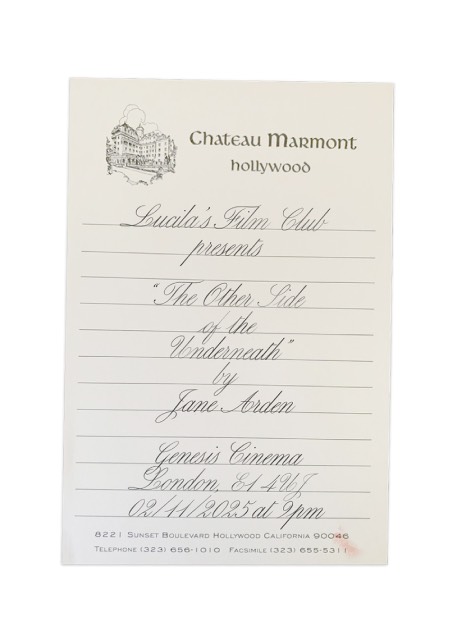 Chateau Marmont
hollywood
Lucila's Film Club
presents
"The Other Side
of the
Underneath"
by
Jane Arden
Genesis Cinema
London, E1 4UJ
02/11/2025 at 9pm
8221 Sunset Boulevard Hollywood California 90046
Telephone (323) 656-1010 Facsimile (323) 655-5311